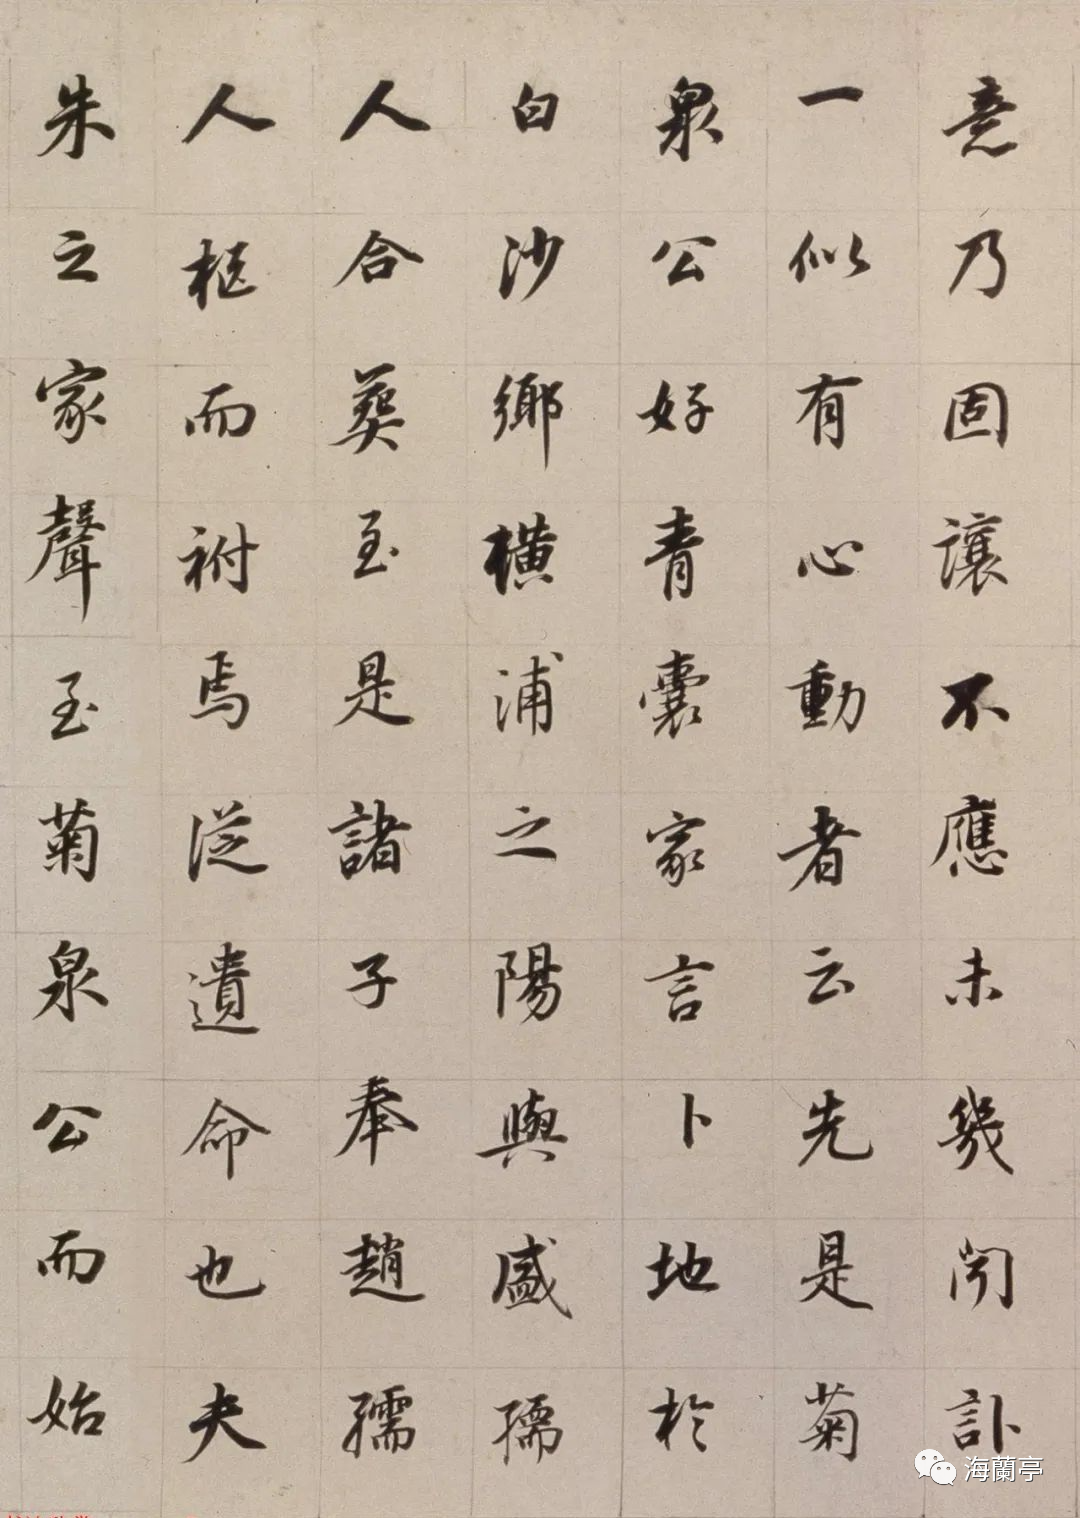 竟乃固讓不應未幾聞訃
一似有心動者云先是菊
泉公好青囊家言卜地於
白沙鄉橫浦之陽與盛孺
人合葬至是諸子奉趙孺
人柩而祔焉從遺命也夫
朱之家聲至菊泉公而始
海蘭亭